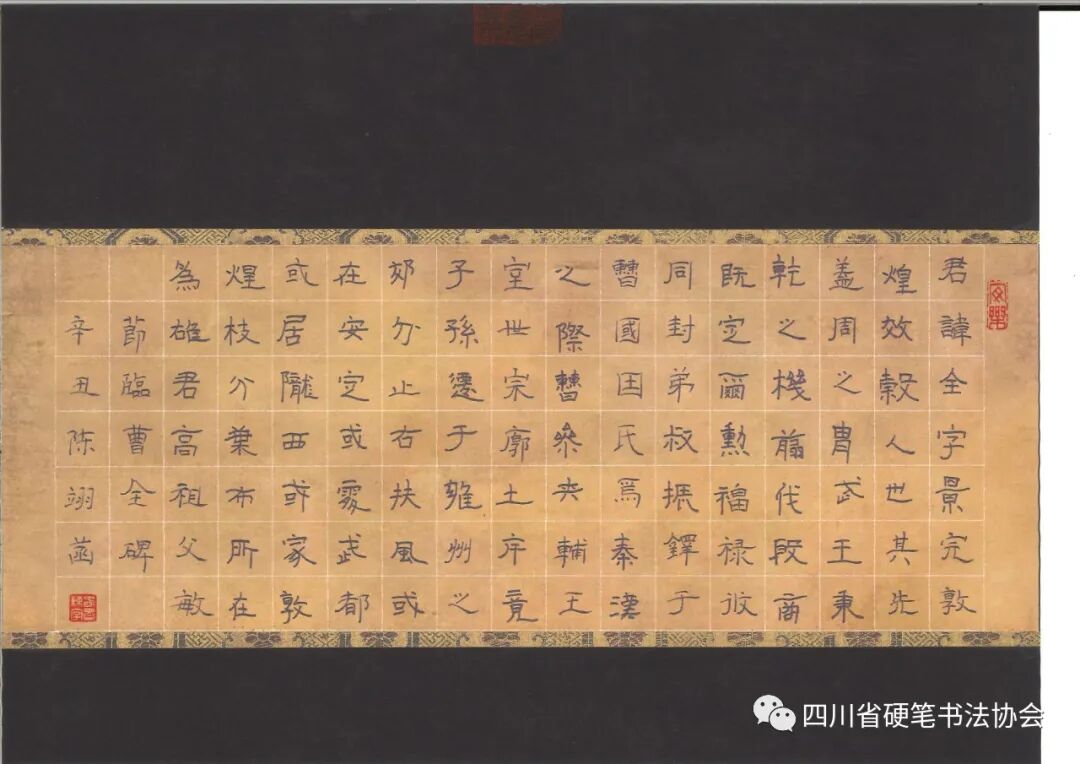 君諱全字景完敦
煌效穀人也其先
盖周之胄武王秉
乾之機翦伐殷商
既定爾勳福禄攸
同封弟叔振鐸于
曹國因氏焉秦漢
之際曹参夾輔王
室世宗廓土斥竟
子孫遷于雝州之
郊分止右扶風或
在安定或處武都
或居隴西或家敦
煌枝分葉布所在
為雄君高祖父敏
節臨曹全碑
辛丑陈翊菡
四川省硬笔书法协会